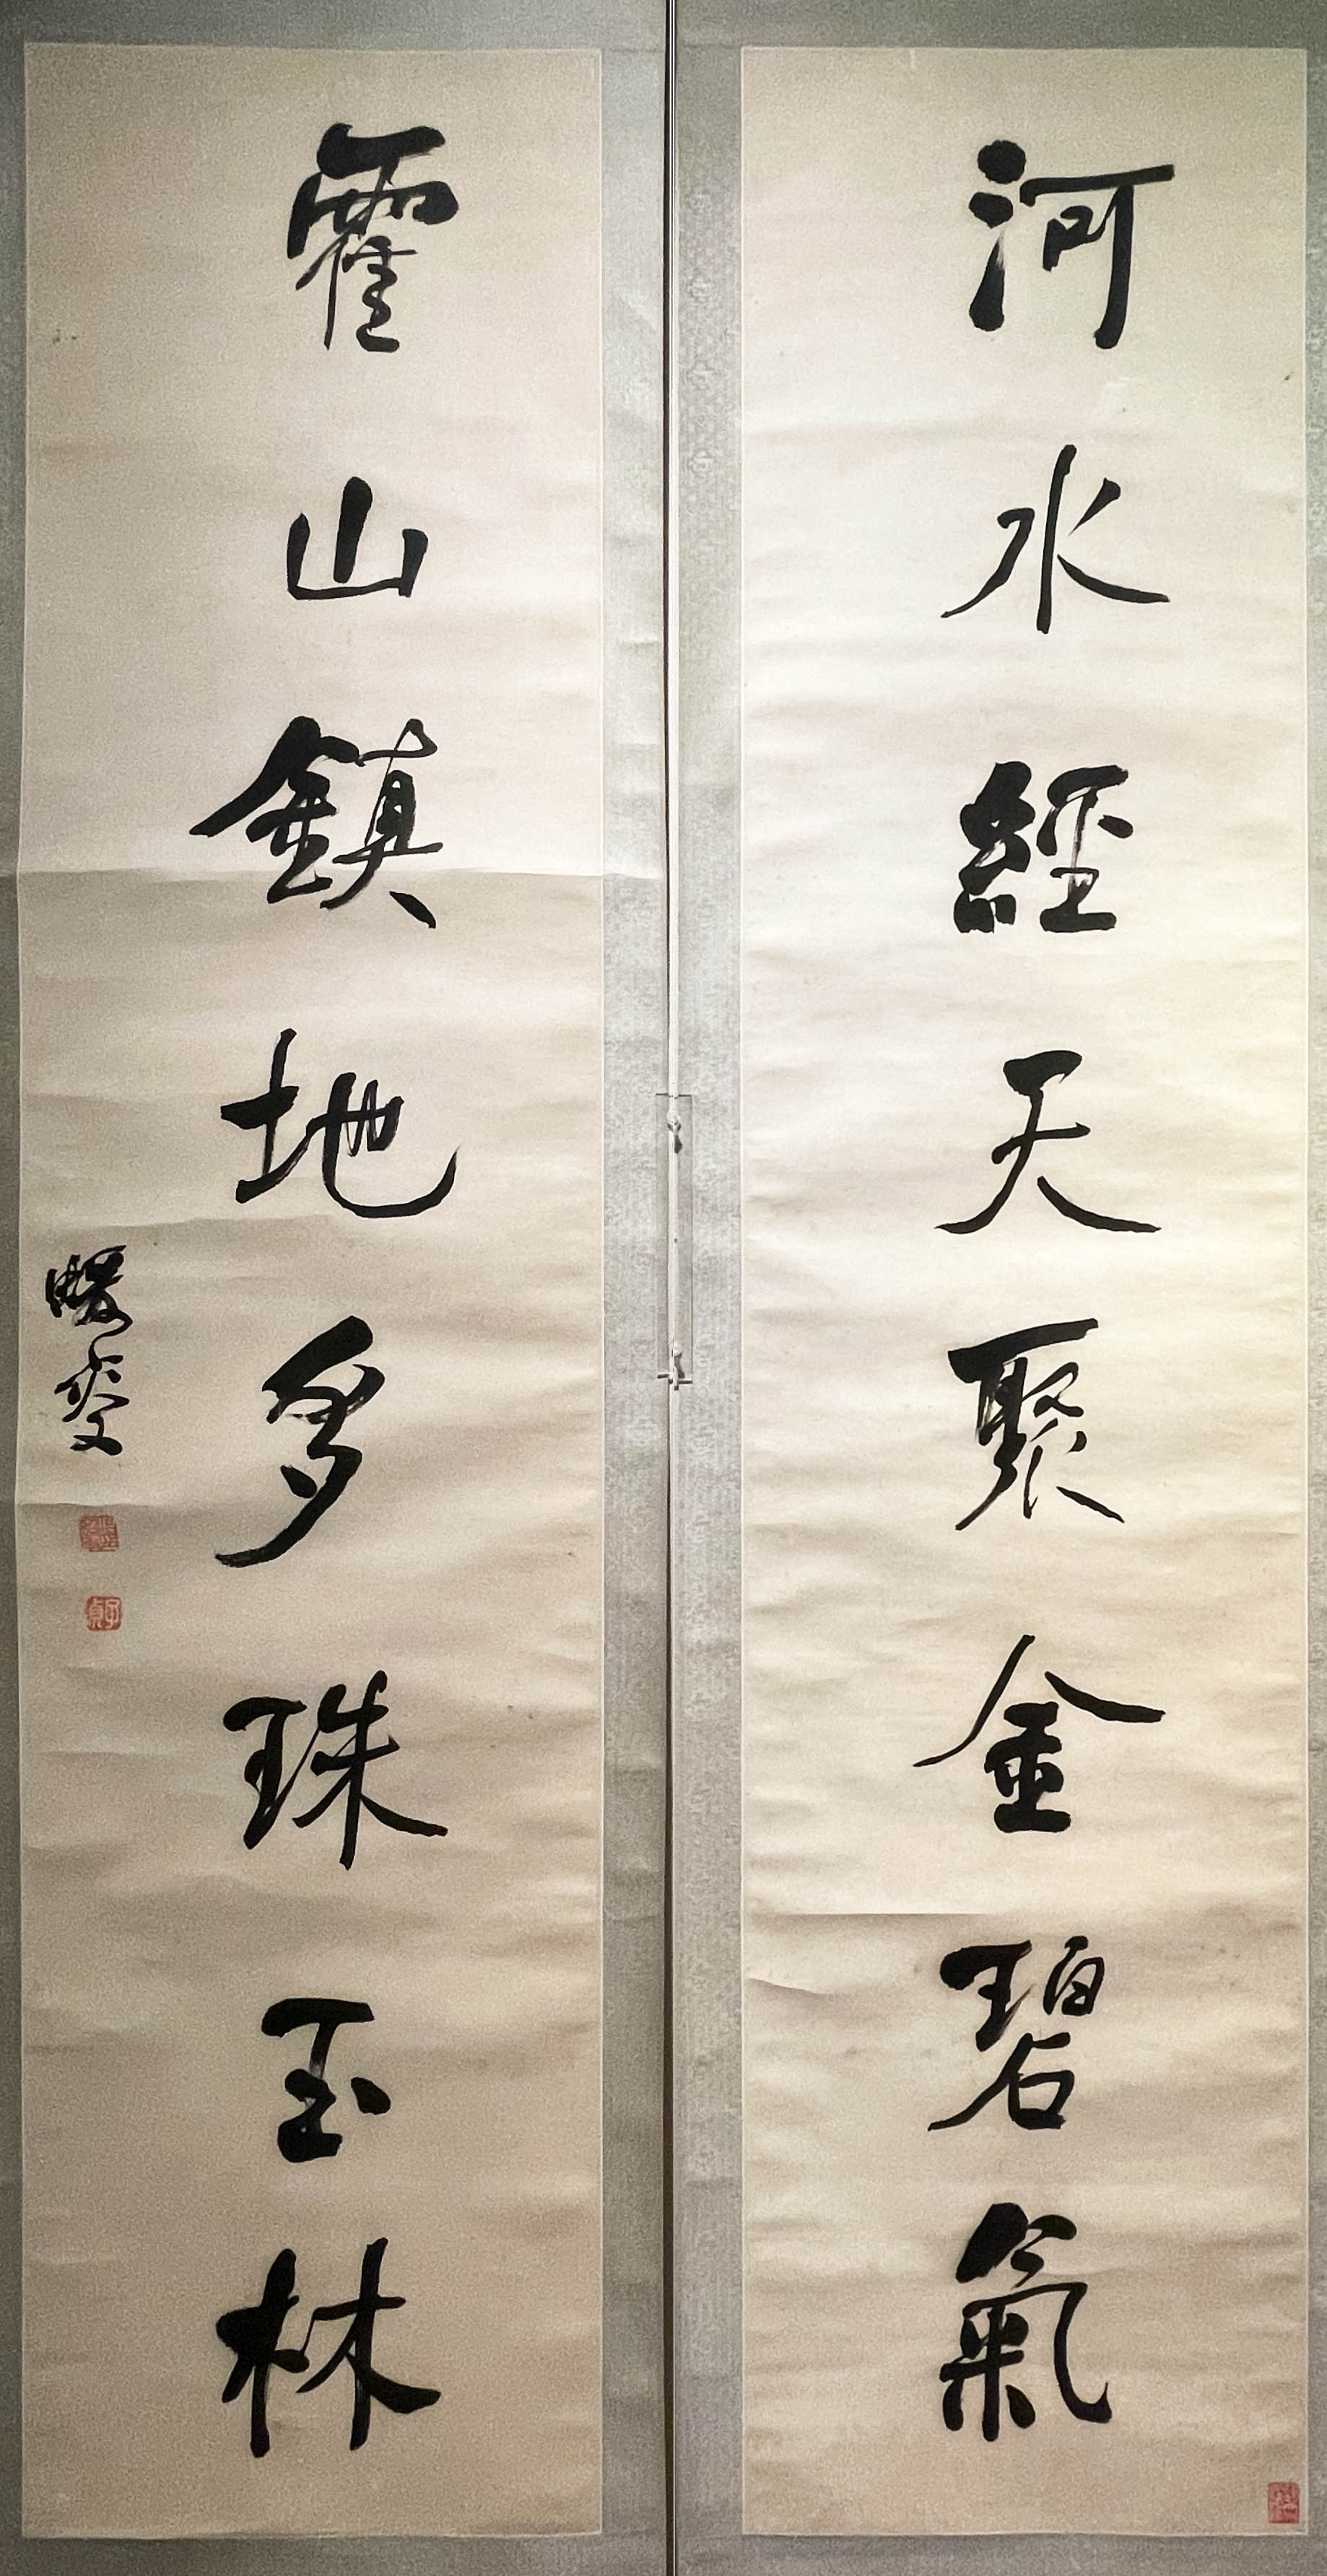 河水經天聚金碧氣
霍山鎮地多珠玉林
蝯叟
子貞